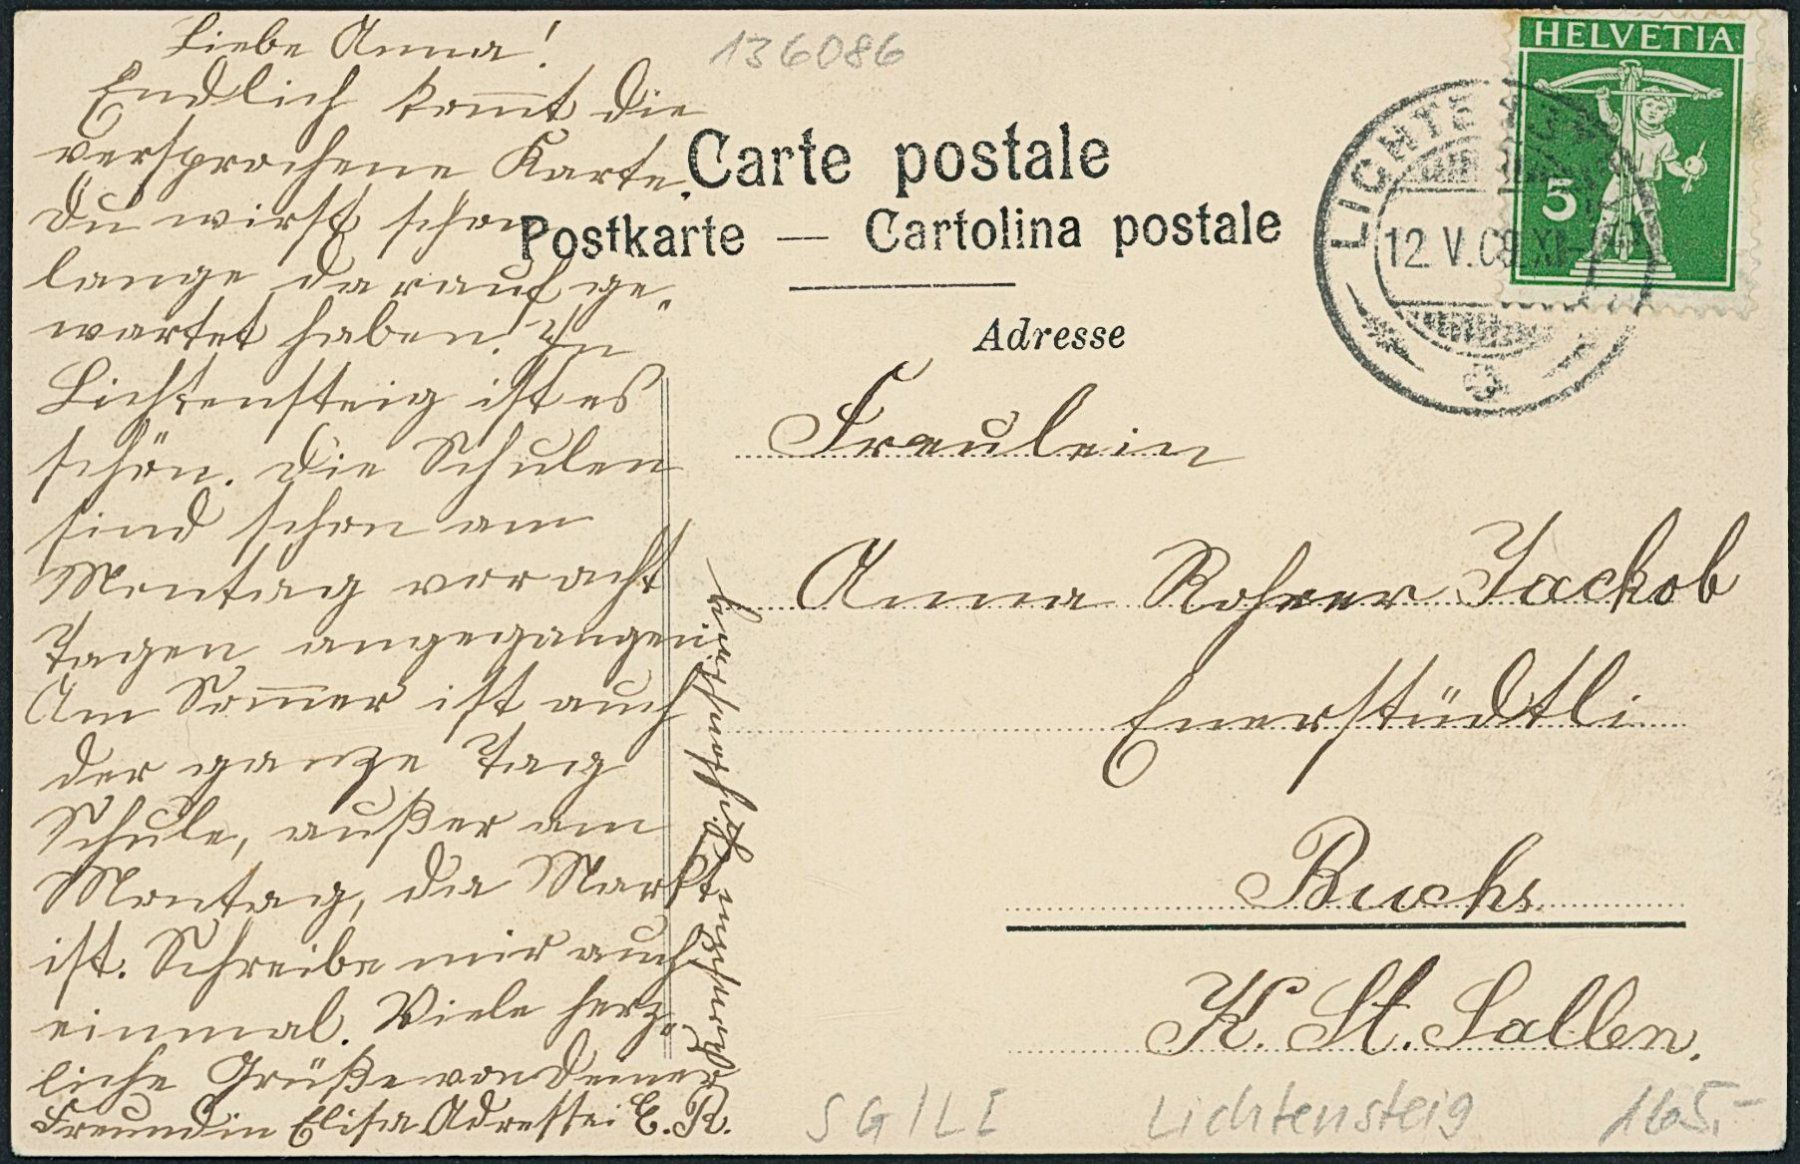 Liebe Anna!
Endlich kommt die
versprochene Karte.
Du wirst schon
lange darauf ge-
wartet haben! In
Lichtensteig ist es
schön. Die Schulen
sind schon am
Montag vor acht
Tagen angegangen.
Am Sommer ist auch
der ganze Tag
Schule, außer am
Montag, da Markt
ist. Schreibe mir auch
einmal. Viele herz-
liche Grüße von Deiner
Freundin Elisa Adresse: E. R.
136086
Carte postale
Postkarte — Cartolina postale
Adresse
HELVETIA
5
LICHTENSTEIG
12.V.09.XI
Freulein
Anna Rohrer Jackob
Enerstüdtli
Buchs
K. St. Gallen.
SG/LI Lichtensteig 165,-